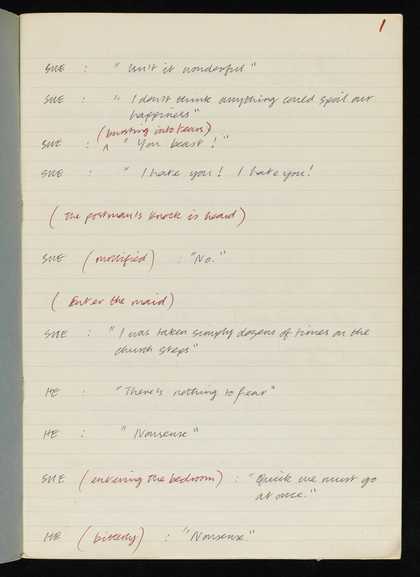 1
SHE : "Isn't it wonderful"
SHE : "I don't think anything could spoil our
happiness"
(bursting into tears)
SHE : ^ "You beast!"
SHE : "I hate you! I hate you!
(The postman's knock is heard)
SHE (mollified) : "No."
(Enter the maid)
SHE : "I was taken simply dozens of times on the
church steps"
HE : "There's nothing to fear"
HE : "Nonsense"
SHE (entering the bedroom) : "Quick we must go
at once."
HE (bitterly) : "Nonsense"